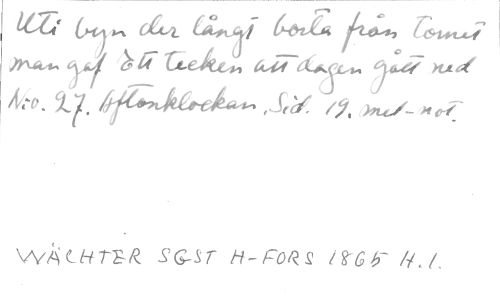 Uti byn der långt borta från tornet
man gaf ett tecken att dagen gått ned
N:o. 27. Aftonklockan, Sid. 19. mel-not.
WÄCHTER SGST H-FORS 1865 H.1.